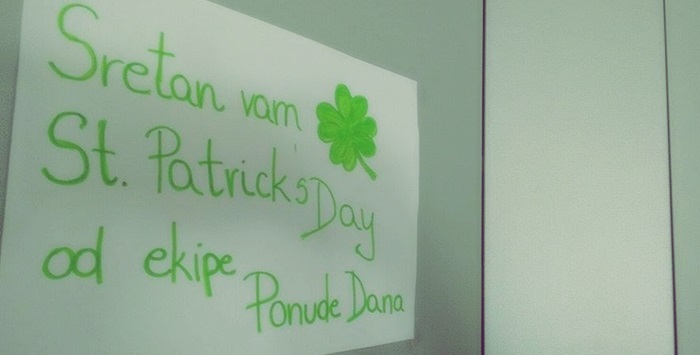 Sretan vam
St. Patricks Day
od ekipe
Ponude Dana